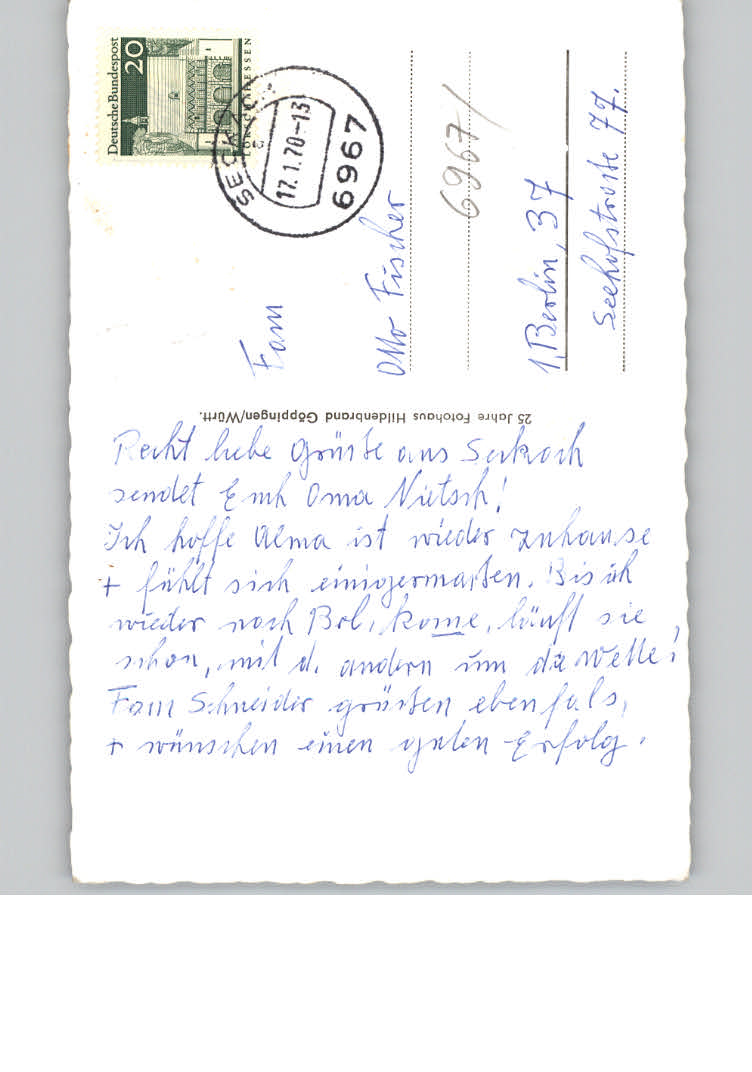 Deutsche Bundespost
20
LORSCH/HESSEN
SECKACH
17.1.70-13
6967
Fam
Otto Fischer
6967/
1 Berlin, 37
Seehofstraße 77.
25 Jahre Fotohaus Hildenbrand Göppingen/Württ.
Recht liebe Grüße aus Seckach
sendet Euch Oma Nietsch!
Ich hoffe Alma ist wieder zuhause
+ fühlt sich einigermaßen. Bis ich
wieder nach Bel, kome, läuft sie
schon, mit d. andern um die Wette!
Fam Schneider grüßen ebenfals,
+ wünschen einen guten Erfolg.